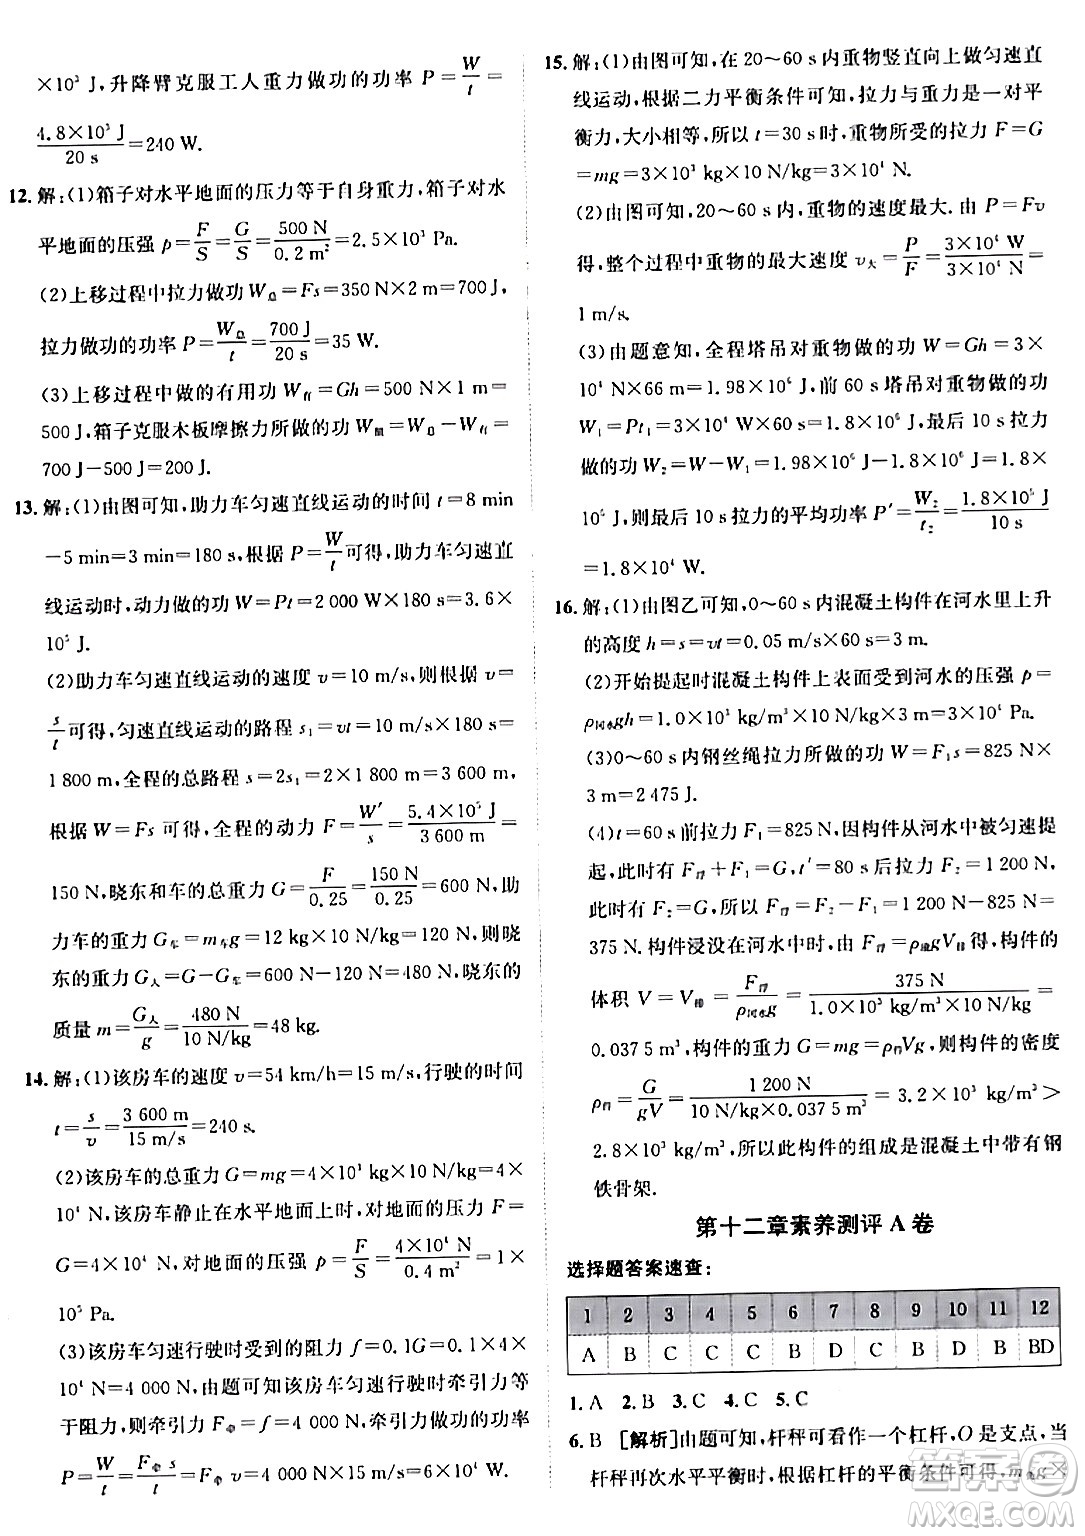 ×10³ J,升降臂克服工人重力做功的功率 P=W/t=
4.8×10³ J/20 s=240 W.
12.解:(1)箱子对水平地面的压力等于自身重力,箱子对水
平地面的压强 p=F/S=G/S=500 N/0.2 m²=2.5×10³ Pa.
(2)上移过程中拉力做功 W总=Fs=350 N×2 m=700 J,
拉力做功的功率 P=W总/t=700 J/20 s=35 W.
(3)上移过程中做的有用功 W有=Gh=500 N×1 m=
500 J,箱子克服木板摩擦力所做的功 W额=W总-W有=
700 J-500 J=200 J.
13.解:(1)由图可知,助力车匀速直线运动的时间 t=8 min
-5 min=3 min=180 s,根据 P=W/t可得,助力车匀速直
线运动时,动力做的功 W=Pt=2 000 W×180 s=3.6×
10⁵ J.
(2)助力车匀速直线运动的速度 v=10 m/s,则根据 v=
s/t可得,匀速直线运动的路程 s₁=vt=10 m/s×180 s=
1 800 m,全程的总路程 s=2s₁=2×1 800 m=3 600 m,
根据 W=Fs 可得,全程的动力 F=W′/s=5.4×10⁵ J/3 600 m=
150 N,晓东和车的总重力 G=F/0.25=150 N/0.25=600 N,助
力车的重力 G车=m车g=12 kg×10 N/kg=120 N,则晓
东的重力 G人=G-G车=600 N-120 N=480 N,晓东的
质量 m=G人/g=480 N/10 N/kg=48 kg.
14.解:(1)该房车的速度 v=54 km/h=15 m/s,行驶的时间
t=s/v=3 600 m/15 m/s=240 s.
(2)该房车的总重力 G=mg=4×10³ kg×10 N/kg=4×
10⁴ N,该房车静止在水平地面上时,对地面的压力 F=
G=4×10⁴ N,对水平地面的压强 p=F/S=4×10⁴ N/0.4 m²=
10⁵ Pa.
(3)该房车匀速行驶时受到的阻力 f=0.1G=0.1×4×
10⁴ N=4 000 N,由题可知该房车匀速行驶时牵引力等
于阻力,牵引力 F牵=f=4 000 N,牵引力做功的功率
P=W/t=F牵s/t=F牵v=4 000 N×15 m/s=6×10⁴ W.
15.解:(1)由图可知,在 20~60 s 内重物竖直向上做匀速直
线运动,根据二力平衡条件可知,拉力与重力是一对平
衡力,大小相等,所以 t=30 s 时,重物所受的拉力 F=G
=mg=3×10³ kg×10 N/kg=3×10⁴ N.
(2)由图可知,20~60 s 内,重物的速度最大.由 P=Fv
得,整个过程中重物的最大速度 v大=P/F=3×10⁴ W/3×10⁴ N=
1 m/s.
(3)由题意知,全程塔吊对重物做的功 W=Gh=3×
10⁴ N×66 m=1.98×10⁶ J,前 60 s 塔吊对重物做的功
W₁=Pt₁=3×10⁴ W×60 s=1.8×10⁶ J,最后 10 s 拉力
做的功 W₂=W-W₁=1.98×10⁶ J-1.8×10⁶ J=1.8×
10⁵ J,则最后 10 s 拉力的平均功率 P′=W₂/t₂=1.8×10⁵ J/10 s
=1.8×10⁴ W.
16.解:(1)由图乙可知,0~60 s 内混凝土构件在河水里上升
的高度 h=s=vt=0.05 m/s×60 s=3 m.
(2)开始提起时混凝土构件上表面受到河水的压强 p=
ρ河水gh=1.0×10³ kg/m³×10 N/kg×3 m=3×10⁴ Pa.
(3)0~60 s 内钢丝绳拉力所做的功 W=F₁s=825 N×
3 m=2 475 J.
(4)t=60 s 前拉力 F₁=825 N,因构件从河水中被匀速提
起,则有 F浮+F₁=G,t′=80 s 后拉力 F₂=1 200 N,
此时有 F₂=G,所以 F浮=F₂-F₁=1 200 N-825 N=
375 N.构件浸没在河水中时,由 F浮=ρ液gV排得,构件的
体积 V=V排=F浮/ρ河水g=375 N/1.0×10³ kg/m³×10 N/kg=
0.037 5 m³,构件的重力 G=mg=ρ构Vg,则构件的密度
ρ构=G/gV=1 200 N/10 N/kg×0.037 5 m³=3.2×10³ kg/m³>
2.8×10³ kg/m³,所以此构件的组成是混凝土中带有钢
铁骨架.
第十二章素养测评 A 卷
选择题答案速查:
1 2 3 4 5 6 7 8 9 10 11 12
A B C C C B D C B D BD
1. A 2. B 3. C 4. C 5. C
6. B [解析]由题可知,杆秤可看作一个杠杆,O 是支点,当
杆秤再次水平平衡时,根据杠杆的平衡条件可得,m物g×
答案圈
MXQE.COM